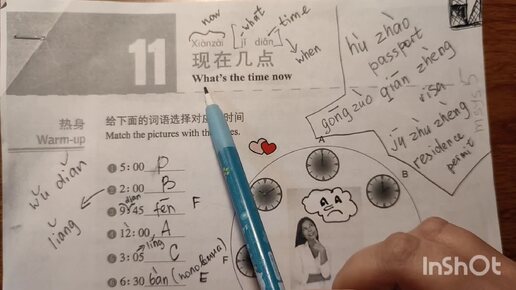 now
what
time
when
Xiànzài jǐ diǎn
11
现在几点
What's the time now
hù zhào
passport
gōng zuò qiān zhèng
visa
jū zhù zhèng
residence
permit
热身
Warm-up
给下面的词语选择对应 时间
Match the pictures with the
wǔ diǎn
liǎng
1 5:00 D
2 2:00 B
diǎn
3 9:45 fēn F
4 12:00 A
líng
5 3:05 C
6 6:30 bàn (половина) E
A
B
F
InShOt